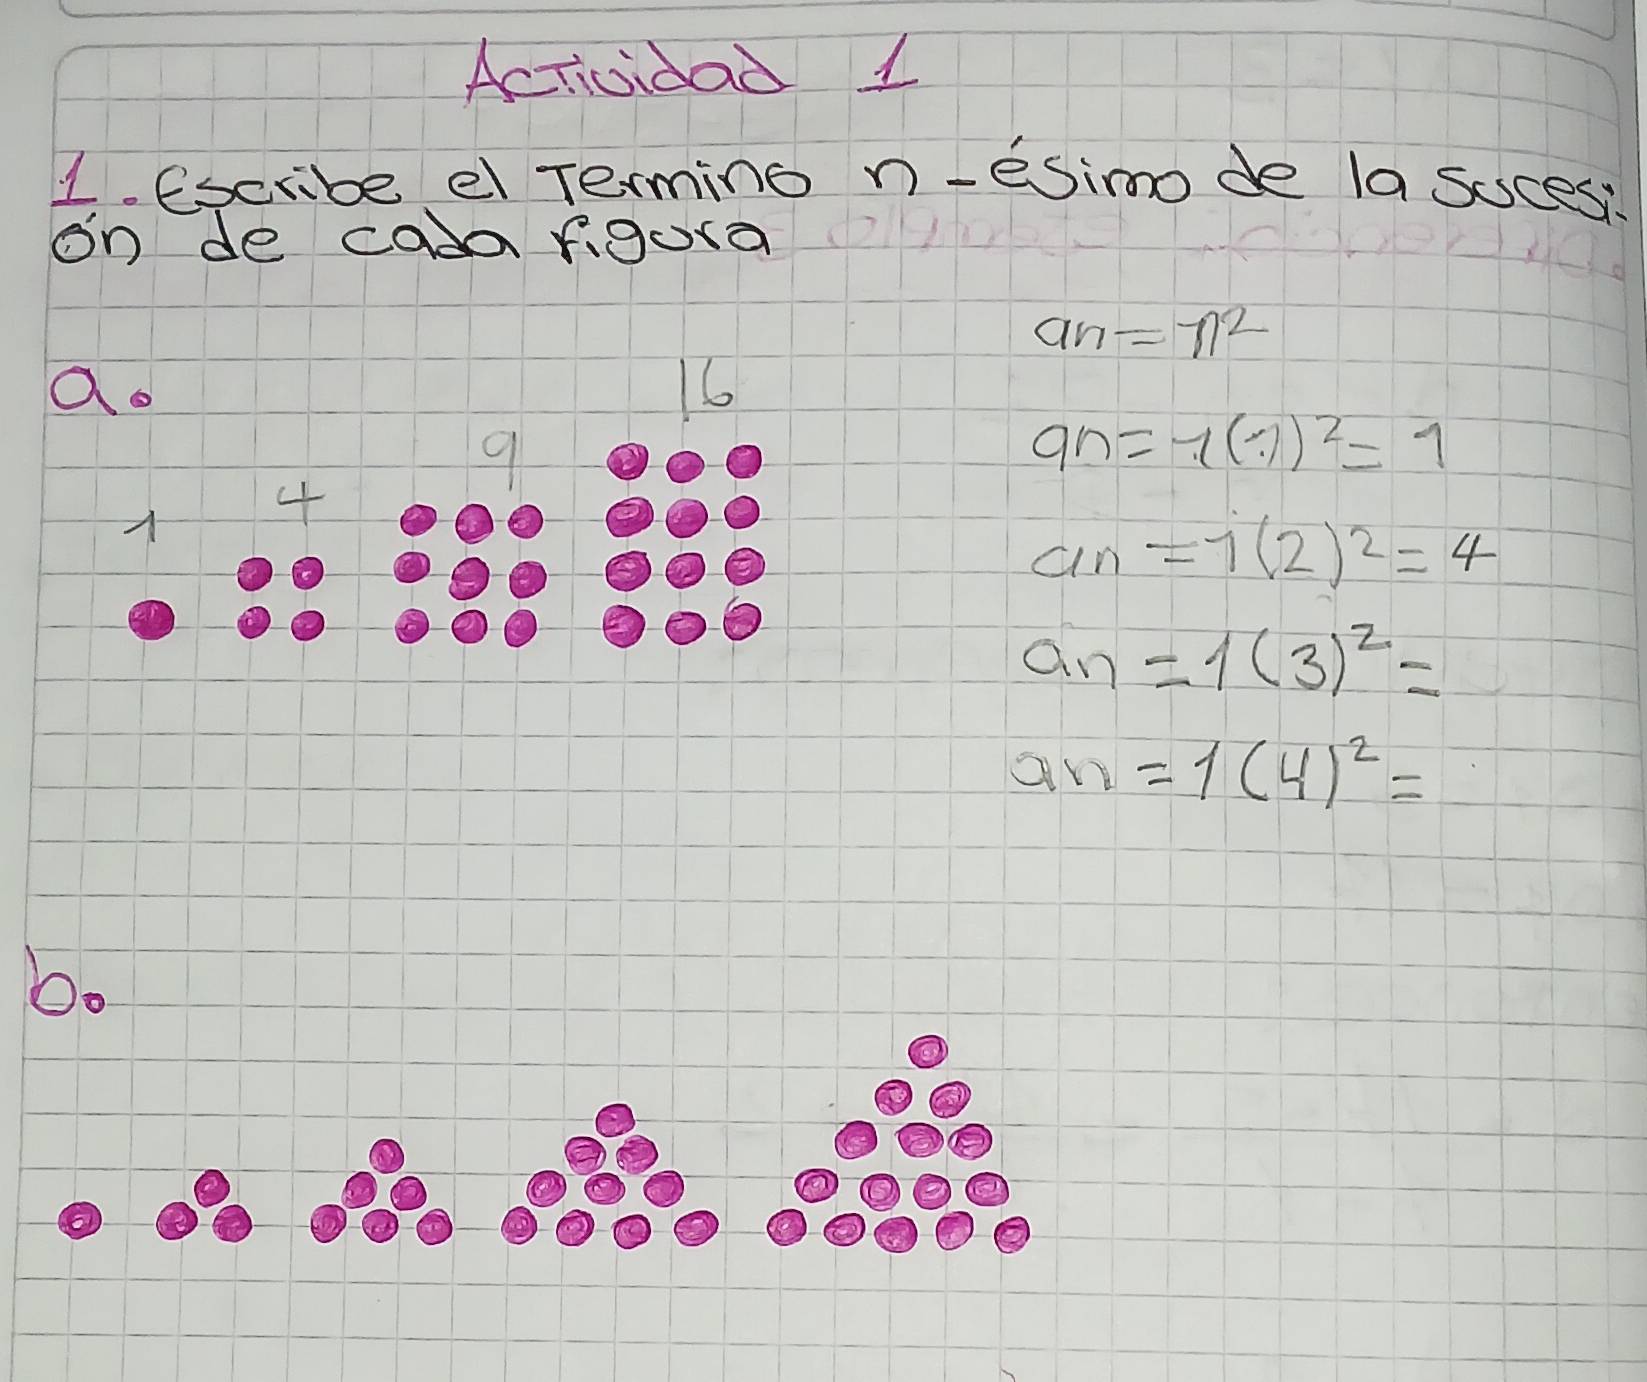 Actividad 1
1. Escribe el Termino n-ésimo de la sucesi-
ón de cada figura
an = n²
a.
16
9
4
1
an = 1(1)² = 1
an = 1(2)² = 4
an = 1(3)² =
an = 1(4)² =
b.